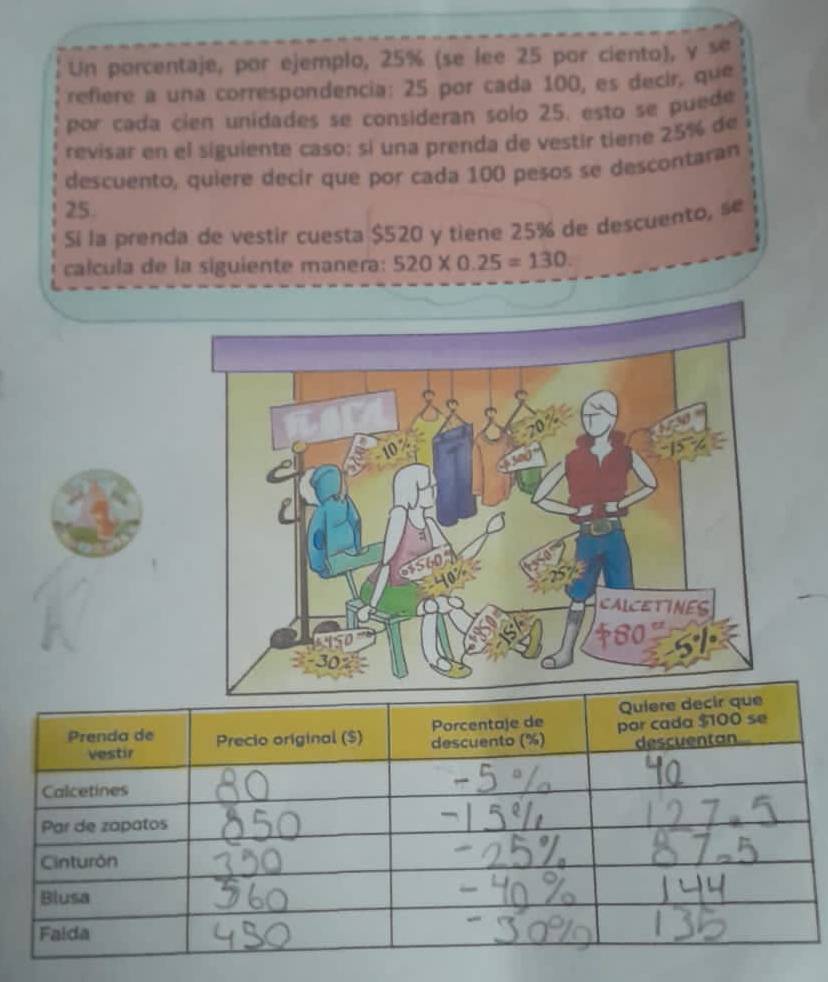 Un porcentaje, por ejemplo, 25% (se lee 25 por ciento), y se
refiere a una correspondencia: 25 por cada 100, es decir, que
por cada cien unidades se consideran solo 25. esto se puede
revisar en el siguiente caso: si una prenda de vestir tiene 25% de
descuento, quiere decir que por cada 100 pesos se descontaran
25.
Si la prenda de vestir cuesta $520 y tiene 25% de descuento, se
calcula de la siguiente manera: 520 X 0.25 = 130.
-10%
-20%
-15%
$560
-40%
-25%
$450
-30%
$850
-15%
CALCETINES
$80
-5%
Prenda de vestir Precio original ($) Porcentaje de descuento (%) Quiere decir que por cada $100 se descuentan...
Calcetines 80 -5% 40
Par de zapatos 850 -15% 127.5
Cinturón 350 -25% 87.5
Blusa 560 -40% 144
Falda 450 -30% 135